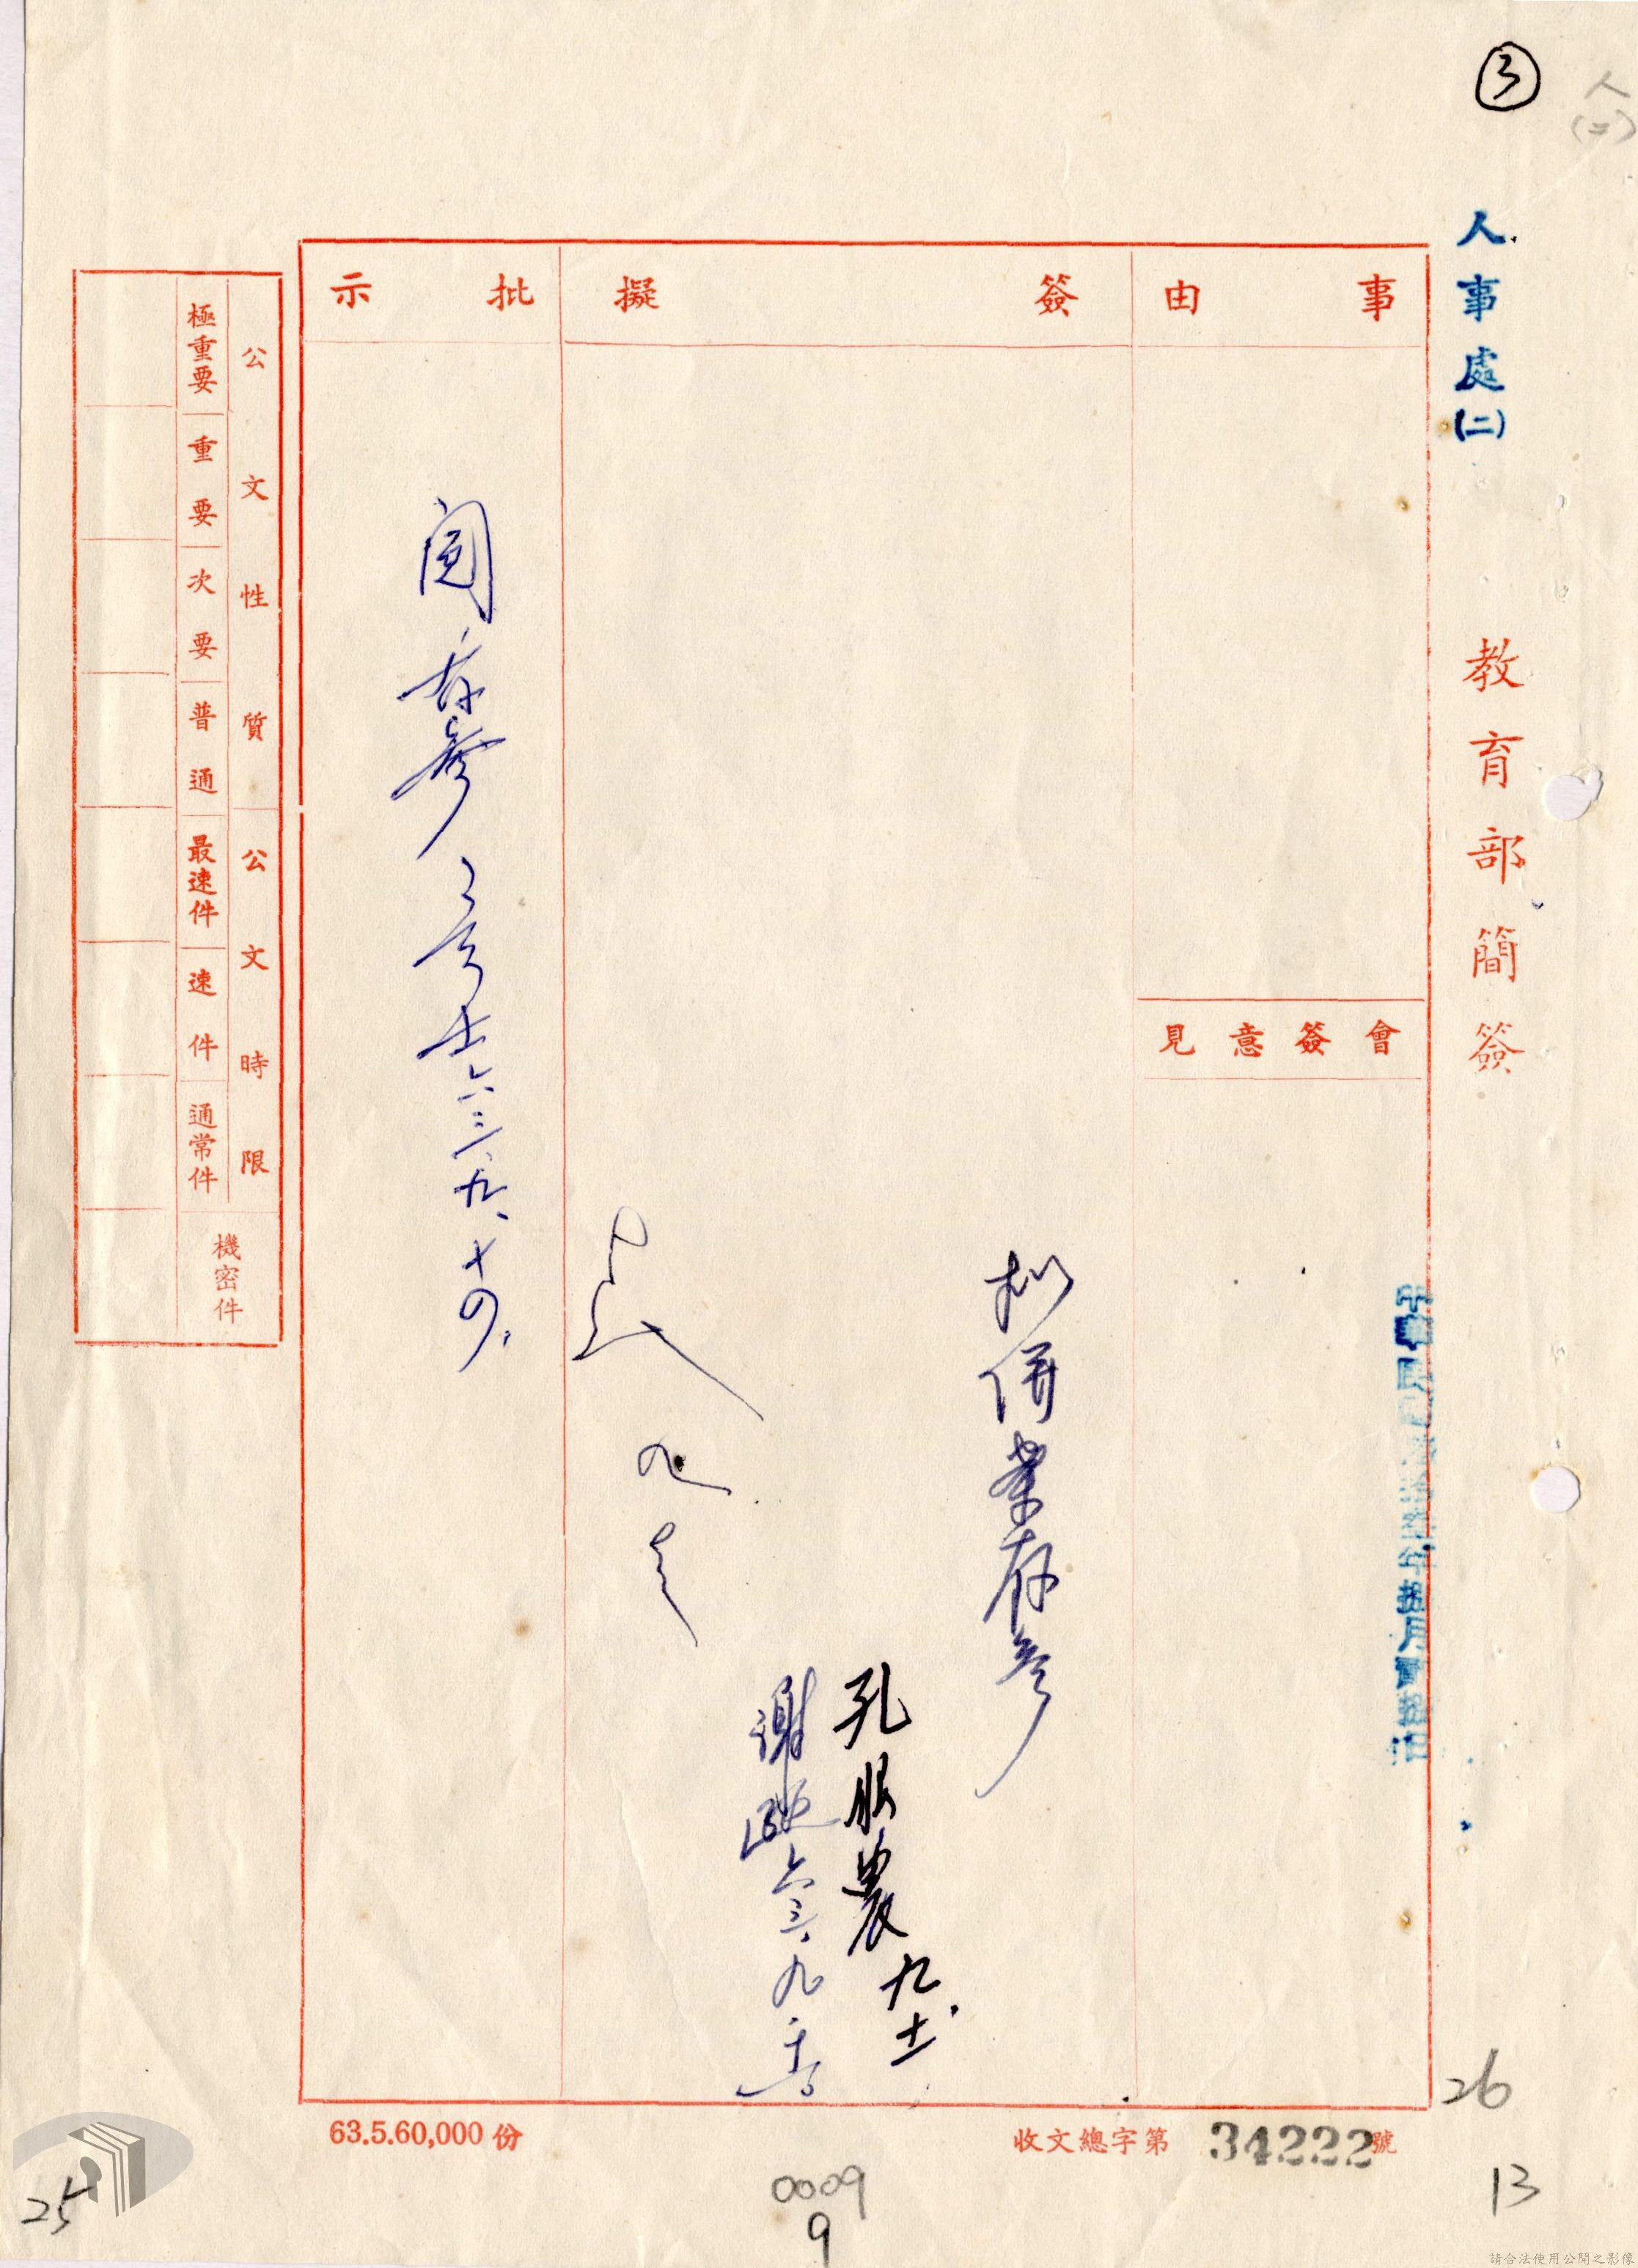 3
人
(二)
人事處(二)
教育部簡簽
事由
簽擬
批示
會簽意見
擬併案存參
孔服農 九.十二
謝 六三、九、十三
閱
存參
六三、九、十四、
公文性質
極重要
重要
次要
普通
公文時限
最速件
速件
通常件
機密件
63.5.60,000份
收文總字第 34222 號
26
13
0009
9
25
請合法使用公開之影像